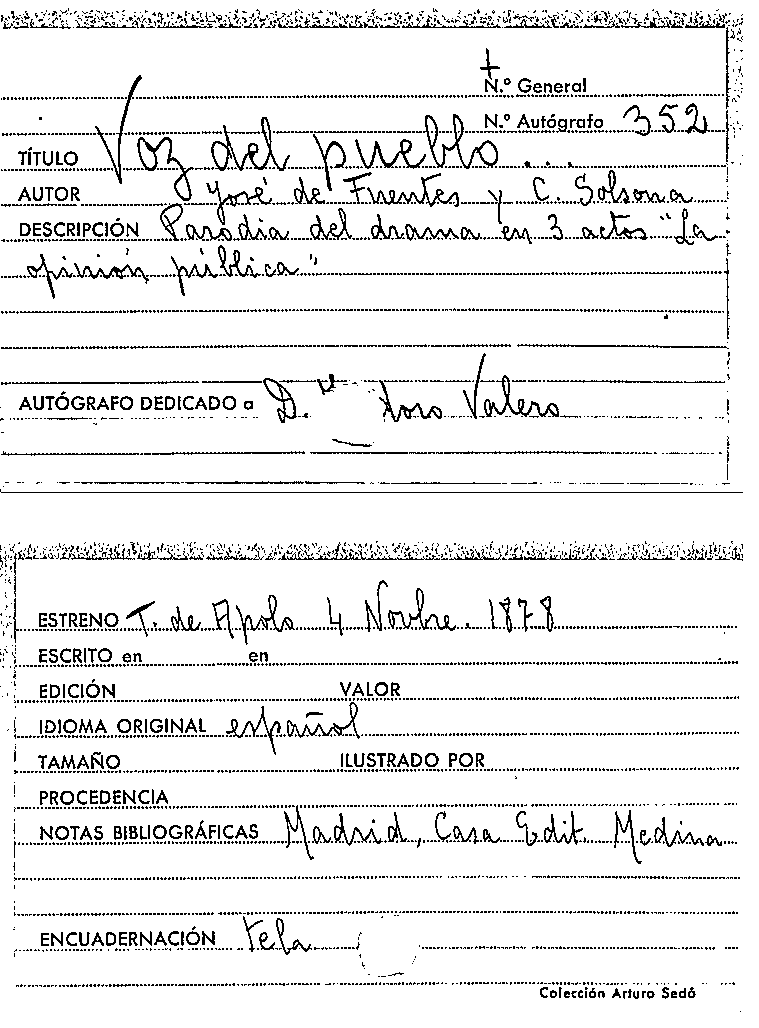 N.º General
N.º Autógrafo 352
TÍTULO Voz del pueblo...
AUTOR José de Fuentes y C. Solsona
DESCRIPCIÓN Parodia del drama en 3 actos "La
opinión pública"
AUTÓGRAFO DEDICADO a D. Valero
ESTRENO T. de Apolo 4 Novbre. 1878
ESCRITO en en
EDICIÓN VALOR
IDIOMA ORIGINAL español
TAMAÑO ILUSTRADO POR
PROCEDENCIA
NOTAS BIBLIOGRÁFICAS Madrid, Casa Edit. Medina
ENCUADERNACIÓN tela
Colección Arturo Sedó